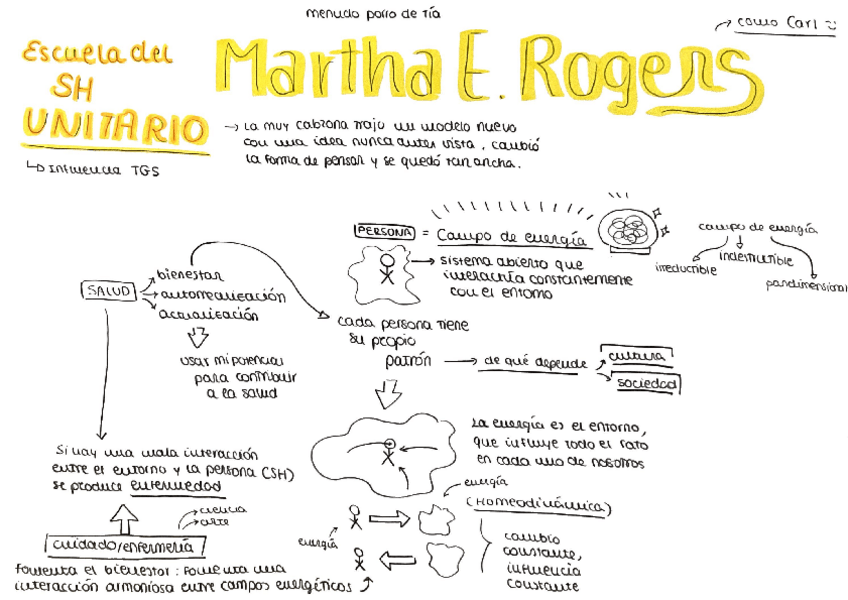 menudo porro de tía
como Carl
Escuela del
SH
UNITARIO
Martha E. Rogers
→ La muy cabrona trajo un modelo nuevo
con una idea nunca antes vista, cambió
la forma de pensar y se quedó tan ancha.
↳ Influencia TGS
PERSONA = Campo de energía
→ sistema abierto que
interactúa constantemente
con el entorno
campo de energía
irreductible
indestructible
pandimensional
SALUD
bienestar
autorrealización
actualización
usar mi potencial
para contribuir
a la salud
cada persona tiene
su propio
patrón → de qué depende
cultura
sociedad
La energía es el entorno,
que influye todo el rato
en cada uno de nosotros
Si hay una mala interacción
entre el entorno y la persona (SH)
se produce enfermedad
ciencia
arte
cuidado/enfermería
Fomenta el bienestar: Fomenta una
interacción armoniosa entre campos energéticos
energía
energía
(Homeodinámica)
cambio
constante,
influencia
constante